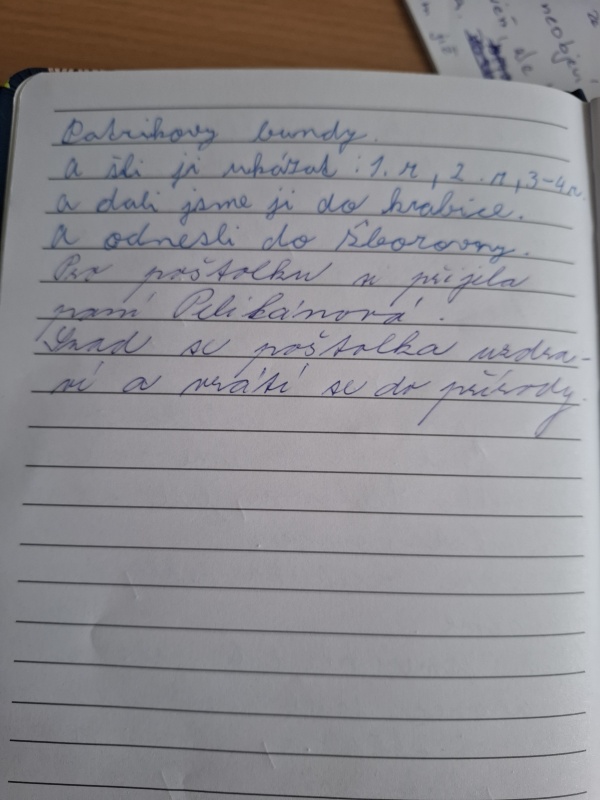 Patrikovy bundy.
a šli ji ukázat : 1. r, 2. r, 3-4 r.
a dali jsme ji do krabice.
a odnesli do Sborovny.
Pro poštolku si přijela
paní Pelikánová.
Snad se poštolka uzdra-
ví a vrátí se do přírody.
neobjeví
ale